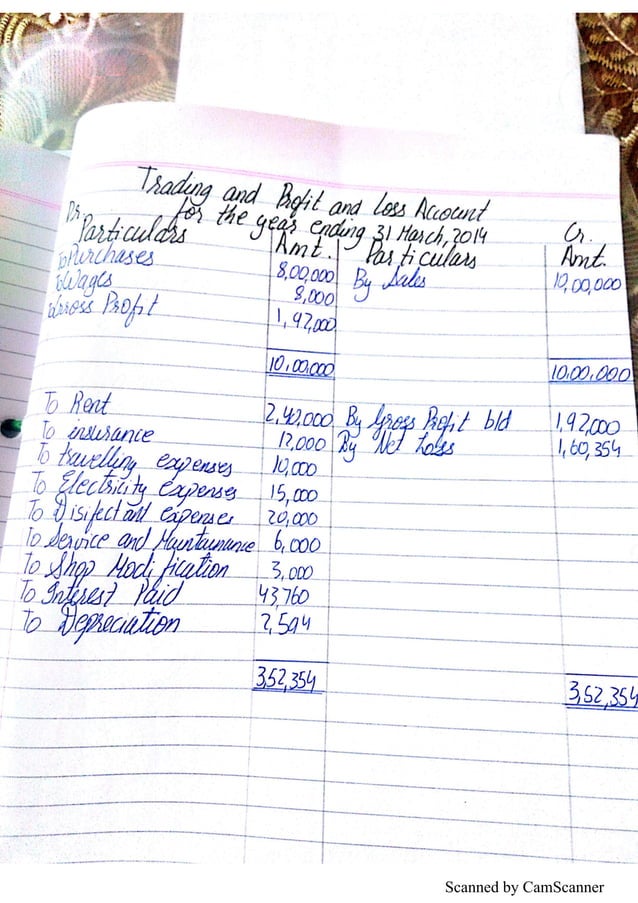 Trading and Profit and Loss Account
for the year ending 31 March, 2014
Dr. Cr.
Particulars Amt. Particulars Amt.
To Purchases 8,00,000 By Sales 10,00,000
To Wages 8,000
To Gross Profit 1,92,000
10,00,000 10,00,000
To Rent 2,40,000 By Gross Profit b/d 1,92,000
To insurance 12,000 By Net Loss 1,60,354
To travelling expenses 10,000
To Electricity expenses 15,000
To Disifectant expenses 20,000
To Service and Maintainance 6,000
To Shop Modification 3,000
To Interest Paid 43,760
To Depreciation 2,594
3,52,354 3,52,354
Scanned by CamScanner